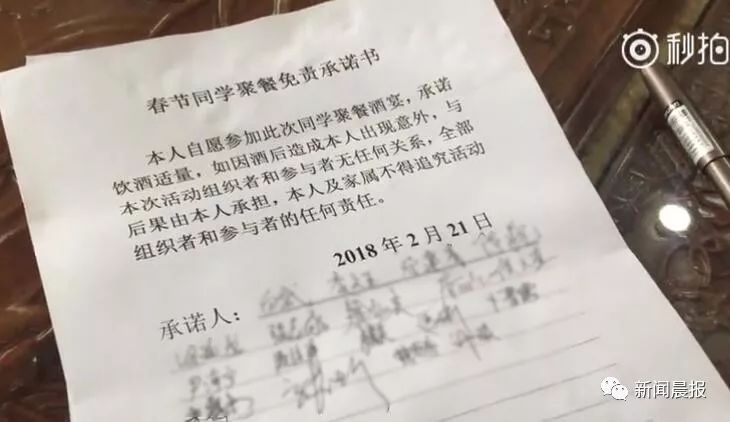 秒拍
春节同学聚餐免责承诺书
本人自愿参加此次同学聚餐酒宴，承诺
饮酒适量，如因酒后造成本人出现意外，与
本次活动组织者和参与者无任何关系，全部
后果由本人承担，本人及家属不得追究活动
组织者和参与者的任何责任。
2018年2月21日
承诺人：
新闻晨报